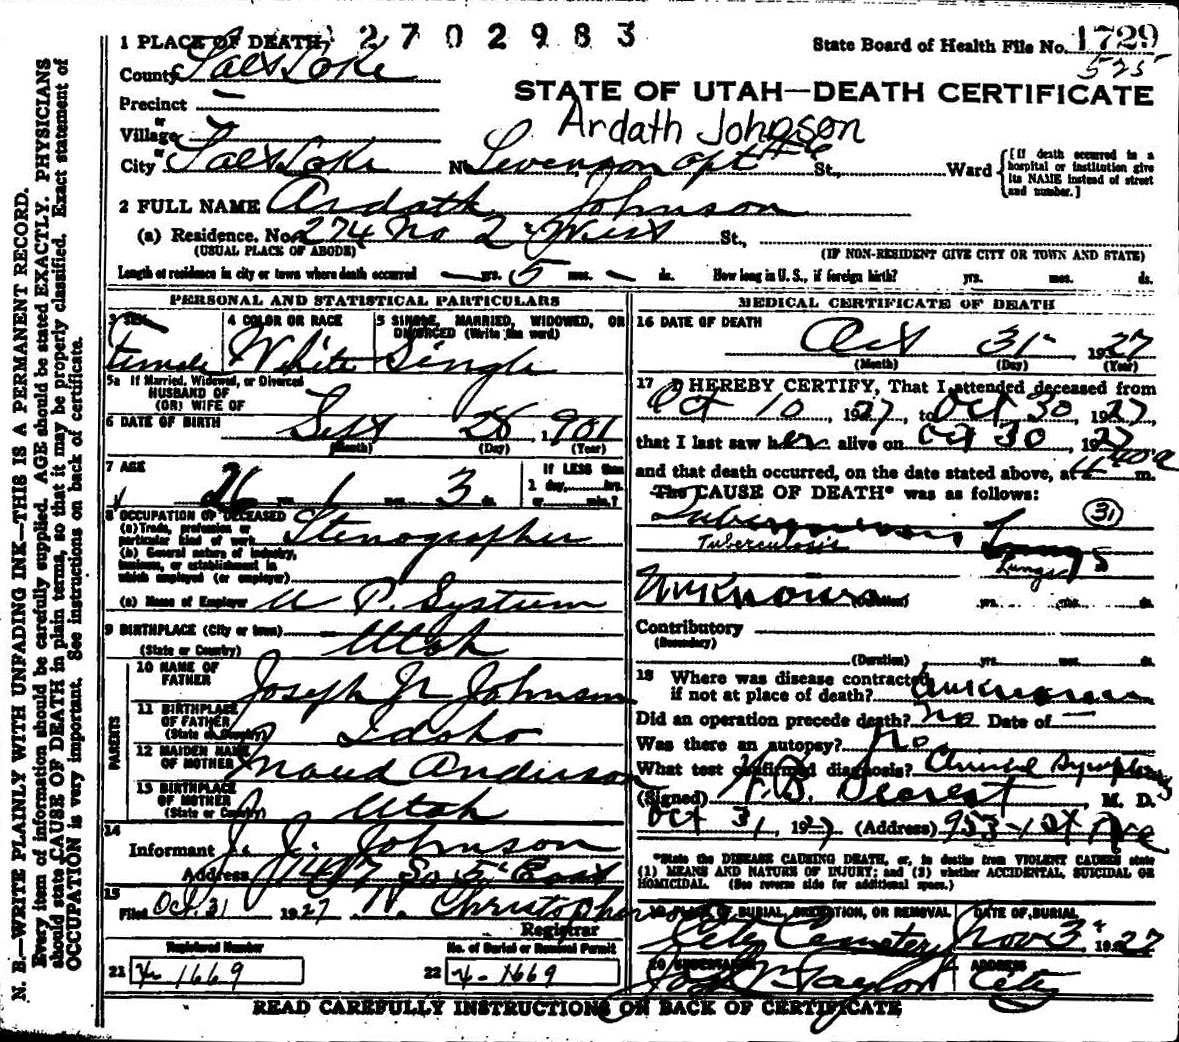 1 PLACE OF DEARTH, 2702983
State Board of Health File No. 1729
County Salt Lake 525
Precinct —
STATE OF UTAH—DEATH CERTIFICATE
or
Village
Ardath Johnson
or
City Salt Lake No. apt #6 St., Ward
[If death occurred in a hospital or institution give its NAME instead of street and number.]
2 FULL NAME Ardath Johnson
(a) Residence. No. 274 No 2d West St.,
(USUAL PLACE OF ABODE) (IF NON-RESIDENT GIVE CITY OR TOWN AND STATE)
Length of residence in city or town where death occurred — yrs. 5 mos. — ds. How long in U. S., if foreign birth? yrs. mos. ds.
PERSONAL AND STATISTICAL PARTICULARS
3 SEX 4 COLOR OR RACE 5 SINGLE, MARRIED, WIDOWED, OR DIVORCED (Write the word)
Female White Single
5a If Married, Widowed, or Divorced
HUSBAND OF
(OR) WIFE OF
6 DATE OF BIRTH Sept 28 1901
(Month) (Day) (Year)
7 AGE If LESS than
26 yrs. 1 mos. 3 ds. 1 day,......hrs.
or......min.?
8 OCCUPATION OF DECEASED
(a) Trade, profession or particular kind of work Stenographer
(b) General nature of industry,
business, or establishment in
which employed (or employer)
(c) Name of Employer U P. System
9 BIRTHPLACE (City or town) —
(State or Country) Utah
PARENTS
10 NAME OF FATHER Joseph J. Johnson
11 BIRTHPLACE OF FATHER
(State or Country) Idaho
12 MAIDEN NAME OF MOTHER Maud Anderson
13 BIRTHPLACE OF MOTHER
(State or Country) Utah
14
Informant J. J. Johnson
Address 1417 So 5th East
15
Filed Oct. 31 1927 N. Christopherson
Registrar
Registered Number No. of Burial or Removal Permit
21 4-1669 22 4-1669
MEDICAL CERTIFICATE OF DEATH
16 DATE OF DEATH
Oct 31 1927
(Month) (Day) (Year)
17 I HEREBY CERTIFY, That I attended deceased from
Oct 10, 1927, to Oct 30, 1927
that I last saw her alive on Oct 30, 1927
and that death occurred, on the date stated above, at m.
The CAUSE OF DEATH* was as follows:
Tuberculosis Lungs 31
Tuberculosis Lungs
Unknown (Duration) yrs. mos. ds.
Contributory
(Secondary)
(Duration) yrs. mos. ds.
18 Where was disease contracted
if not at place of death? unknown
Did an operation precede death? No Date of —
Was there an autopsy? No.
What test confirmed diagnosis? Clinical Symptoms
(Signed) M. D.
Oct 31, 1927 (Address) 953-1st Ave
*State the DISEASE CAUSING DEATH, or, in deaths from VIOLENT CAUSES state
(1) MEANS AND NATURE OF INJURY; and (2) whether ACCIDENTAL, SUICIDAL OR
HOMICIDAL. (See reverse side for additional space.)
19 PLACE OF BURIAL, CREMATION, OR REMOVAL DATE OF BURIAL
City Cemetery Nov 3d 1927
20 UNDERTAKER ADDRESS
Taylor City
READ CAREFULLY INSTRUCTIONS ON BACK OF CERTIFICATE
N. B.—WRITE PLAINLY WITH UNFADING INK—THIS IS A PERMANENT RECORD.
Every item of information should be carefully supplied. AGE should be stated EXACTLY. PHYSICIANS
should state CAUSE OF DEATH in plain terms, so that it may be properly classified. Exact statement of
OCCUPATION is very important. See instructions on back of certificate.